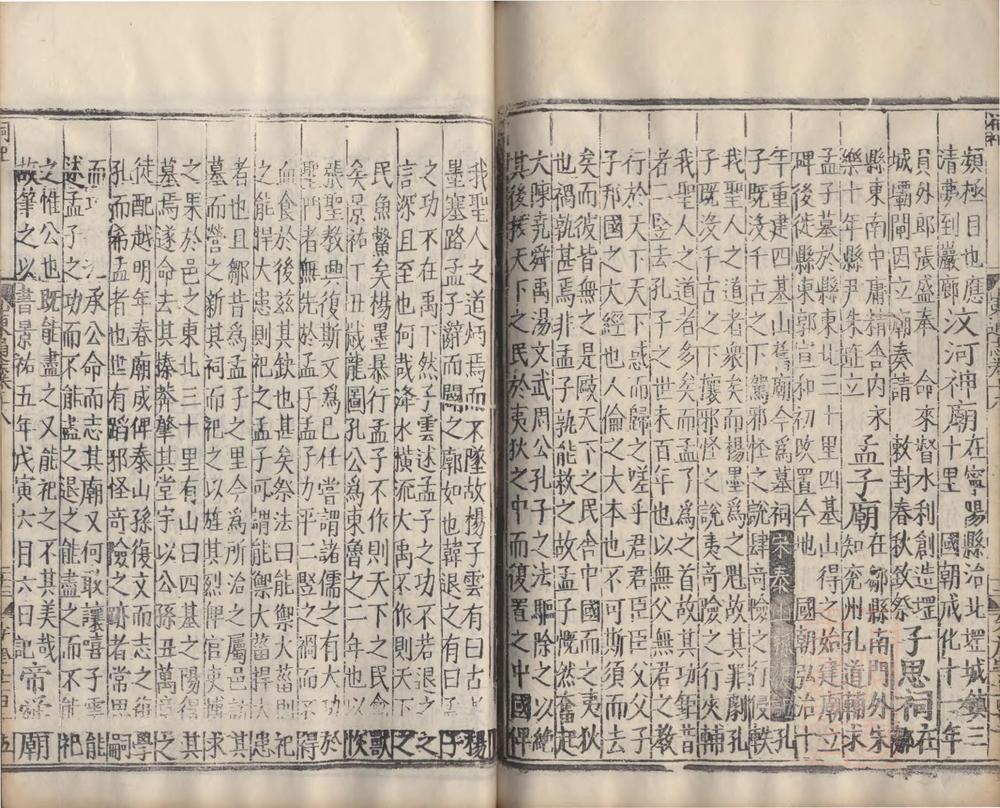 頻極目也應
清夢到巖廊
汶河神廟
在寧陽縣治北堽城鎮三
十里 國朝成化十一年
員外郎張盛奉 命來督水利創造堽
城壩閘因立廟奏請 敕封春秋致祭
子思祠
在
鄒
縣東南中庸精舍內永
樂十年縣尹朱瑄立
孟子廟
在鄒縣南門外宋
知兗州孔道輔求
孟子墓於縣東北三十里四基山得之始建廟立
碑後徙縣東郭宣和初改置今地 國朝弘治十
年重建四基山舊廟今爲墓祠
宋泰山孫復記
孔
子既沒千古之下駕邪怪之說肆奇險之行侵軼
我聖人之道者衆矣而楊墨爲之魁故其罪劇孔
子既沒千古之下攘邪怪之說夷奇險之行夾輔
我聖人之道者多矣而孟子爲之首故其功鉅昔
者二豎去孔子之世未百年也以無父無君之教
行於天下天下惑而歸之嗟乎君君臣臣父父子
子邦國之大經也人倫之大本也不可斯須而去
矣而彼皆無之是敺天下之民舍中國而之夷狄
也禍孰甚焉非孟子孰能救之故孟子慨然奮起
大陳堯舜禹湯文武周公孔子之法驅除之以絶
其後拔天下之民於夷狄之中而復置之中國俾
我聖人之道炳焉而不墜故楊子雲有曰古者楊
墨塞路孟子辭而闢之廓如也韓退之有曰孟子
之功不在禹下然子雲述孟子之功不若退之之
言深且至也何哉洚水橫流大禹不作則天下之
民魚鱉矣楊墨暴行孟子不作則天下之民禽獸
矣景祐丁丑歲龍圖孔公爲東魯之二年也以恢
張聖教興復斯文爲己任嘗謂諸儒之有功於
聖門者無先於孟子孟子力平二豎之禍而不得
血食於後兹其欽也甚矣祭法曰能禦大菑則祀
之能捍大患則祀之孟子可謂能禦大菑捍大患
者也且鄒昔爲孟子之里今爲所治之屬邑訪其
墓而營之新其祠而祀之以旌其烈俾官吏博求
之果於邑之東北三十里有山曰四基之陽得其
墓焉遂命去其榛莽肇其堂宇以公孫丑萬章之
徒配越明年春廟成俾泰山孫復文而志之復學
孔而希孟者也世有蹈邪怪奇險之跡者常思嗣
而攻之況承公命而志其廟又何敢讓嘻子雲能
述孟子之功而不能盡之退之能盡之而不能祀
之惟公也既能盡之又能祀之不其美哉
故筆之以書景祐五年戊寅六月六日記 帝堯廟